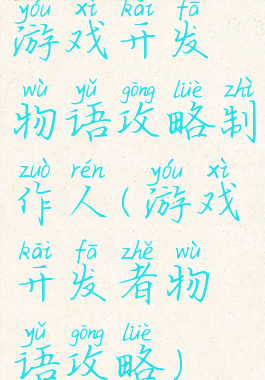 yóu xì kāi fā
游戏开发
wù yǔ gōng lüè zhì
物语攻略制
zuò rén yóu xì
作人(游戏
kāi fā zhě wù
开发者物
yǔ gōng lüè
语攻略)